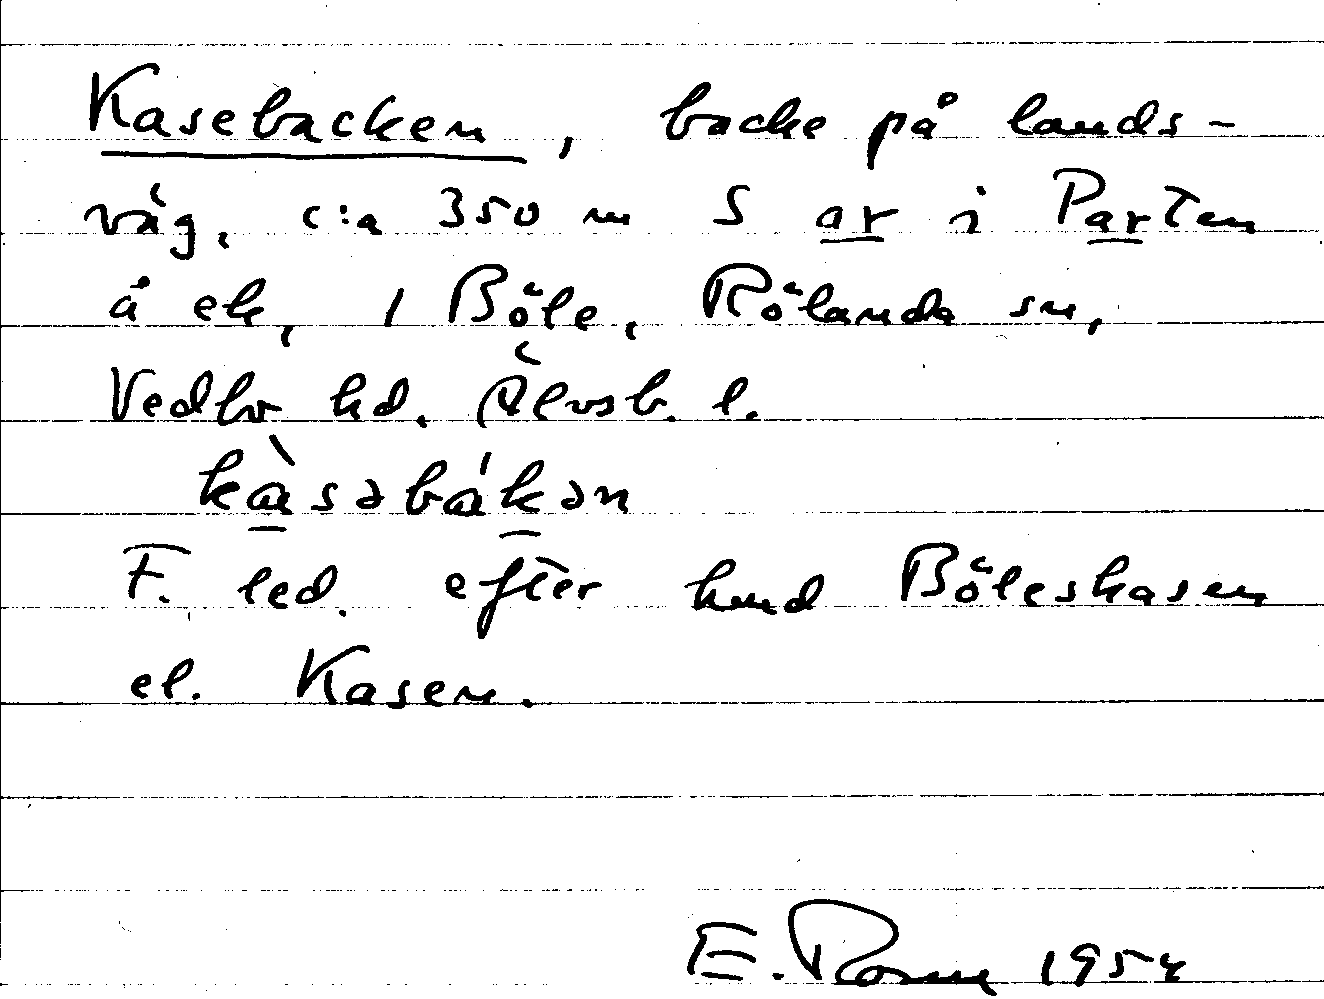 Kasebacken, backe på lands-
väg, c:a 350 m S ar i Parten
å ek, 1 Böle, Rölanda sn,
Vedbo hd. Älvsb. l.
kàsəbák̄ən
F. led. efter hmd Böleskasen
el. Kasen.
E. 1954